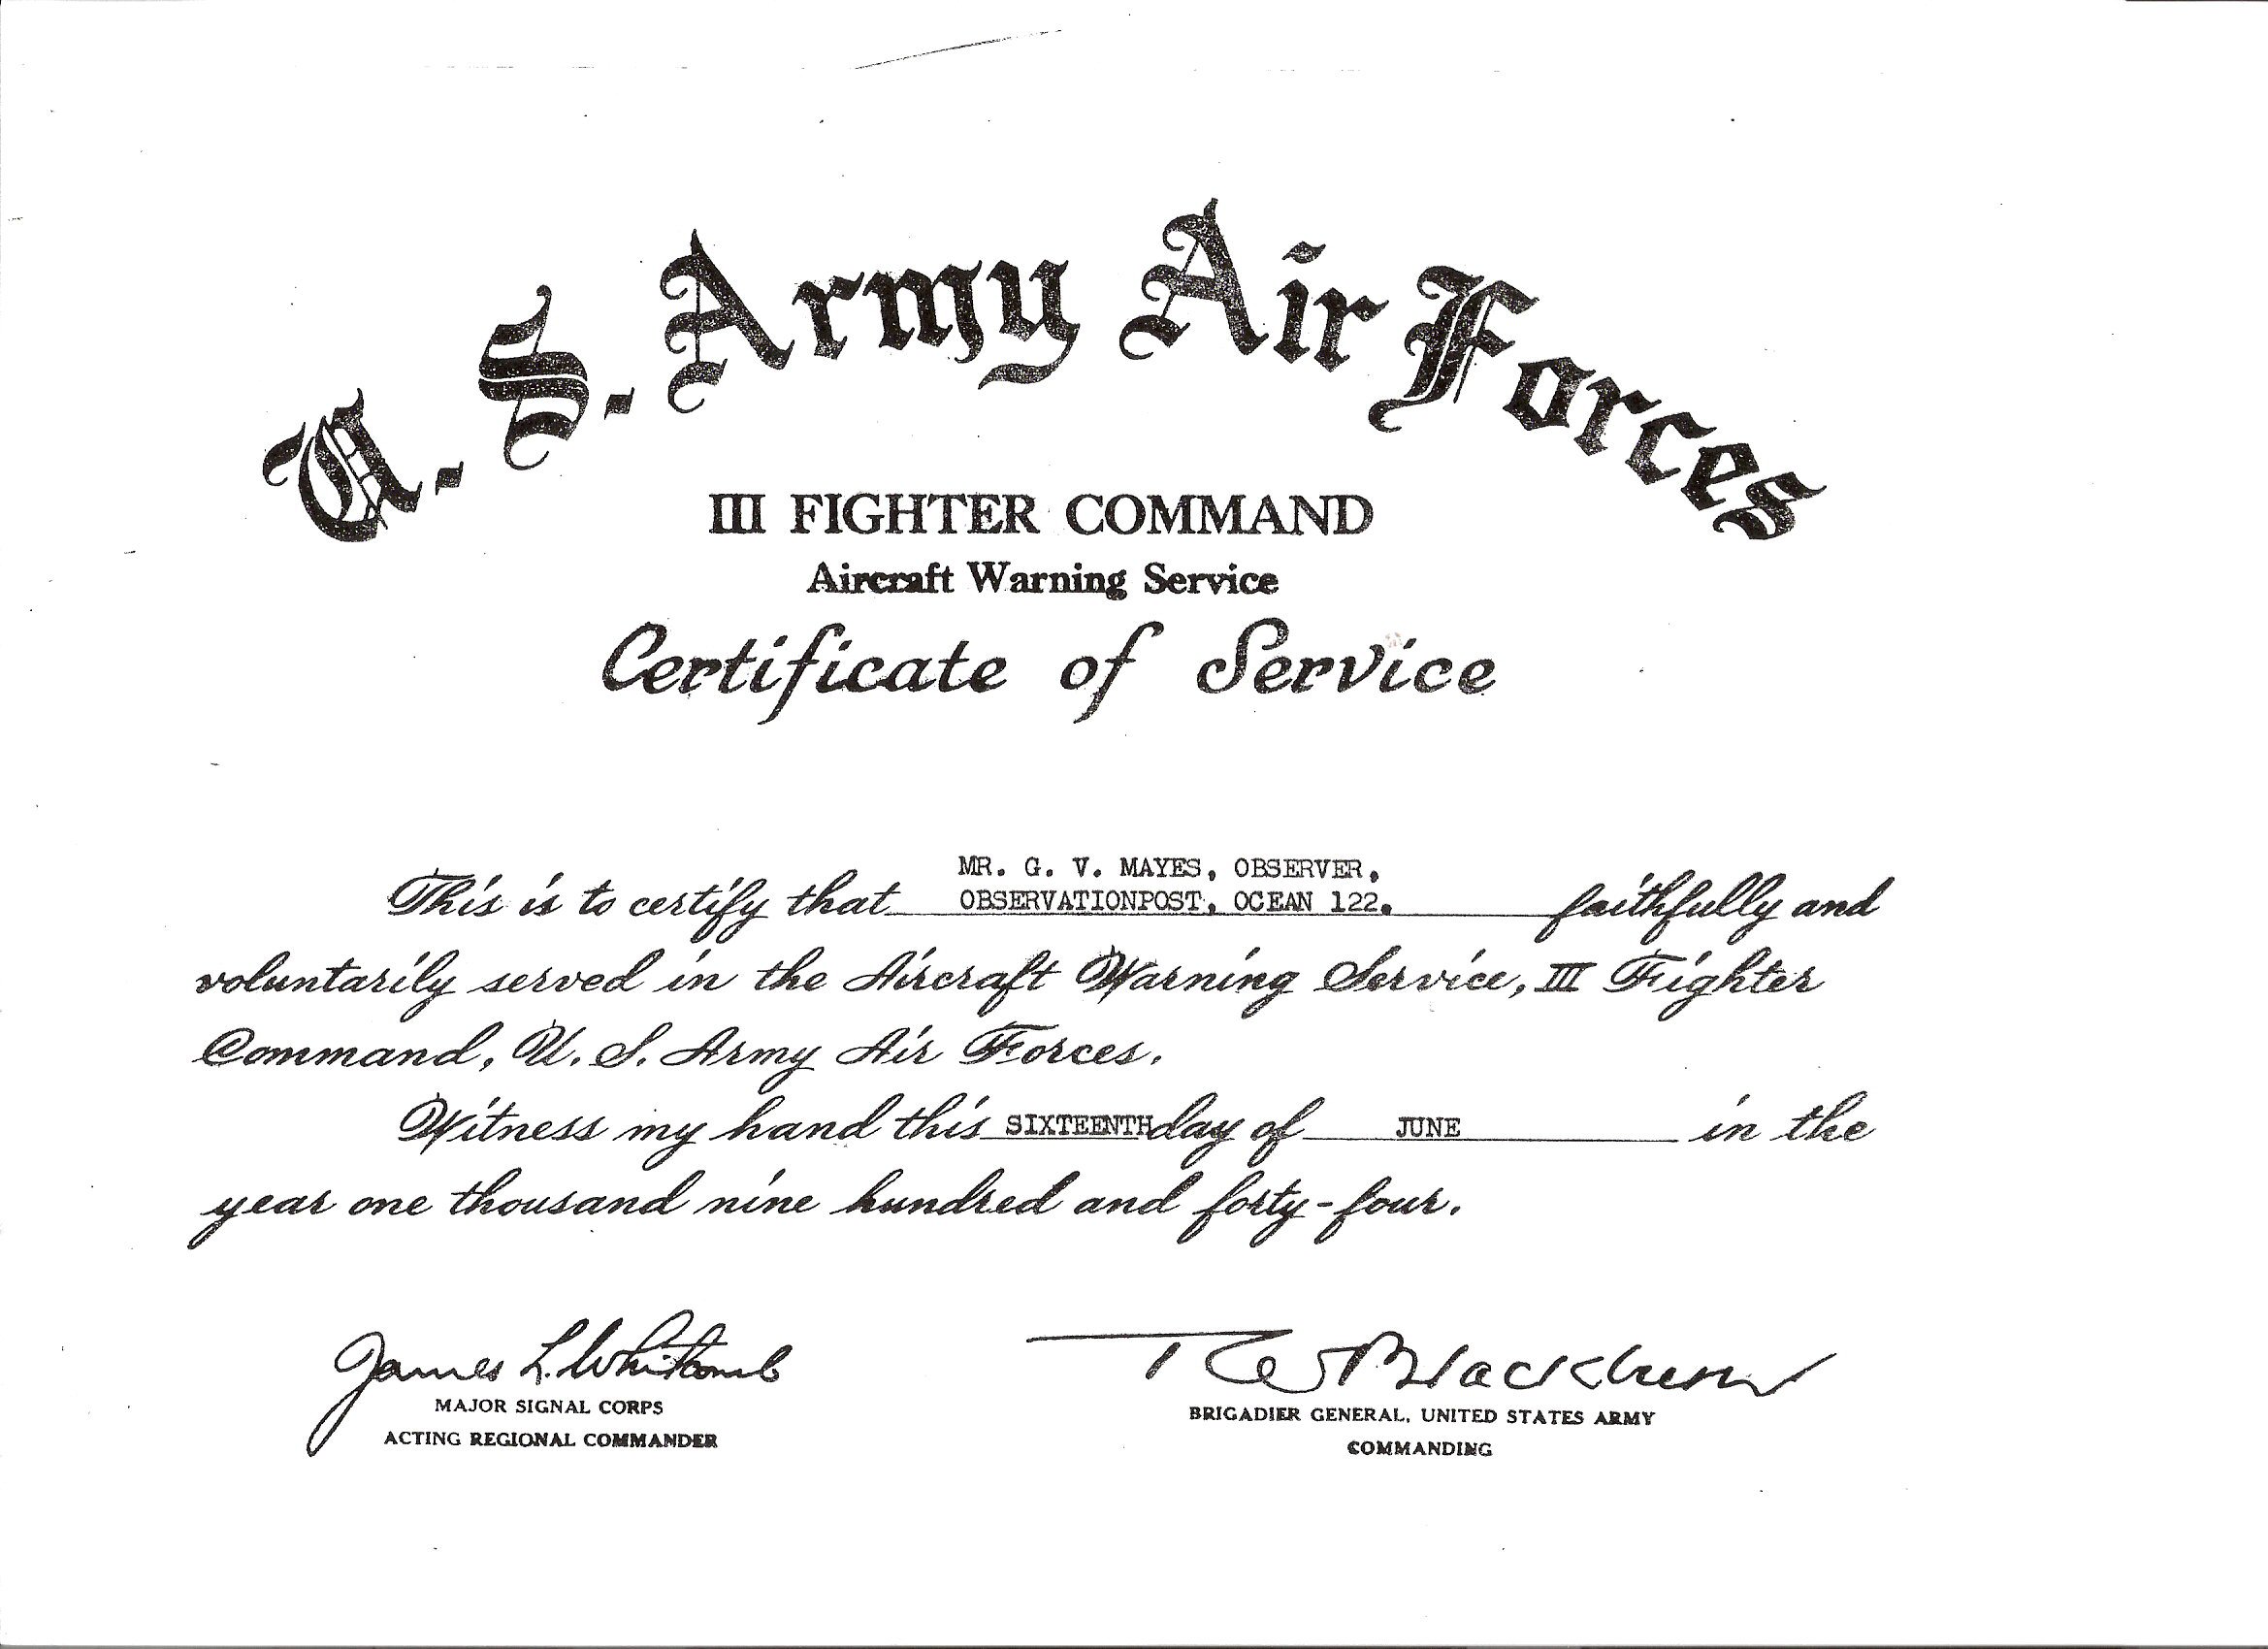 U. S. Army Air Forces
III FIGHTER COMMAND
Aircraft Warning Service
Certificate of Service
MR. G. V. MAYES, OBSERVER,
This is to certify that OBSERVATIONPOST, OCEAN 122. faithfully and
voluntarily served in the Aircraft Warning Service, III Fighter
Command, U. S. Army Air Forces.
Witness my hand this SIXTEENTH day of JUNE in the
year one thousand nine hundred and forty-four.
James L. Whitcomb
MAJOR SIGNAL CORPS
ACTING REGIONAL COMMANDER
Blackburn
BRIGADIER GENERAL, UNITED STATES ARMY
COMMANDING